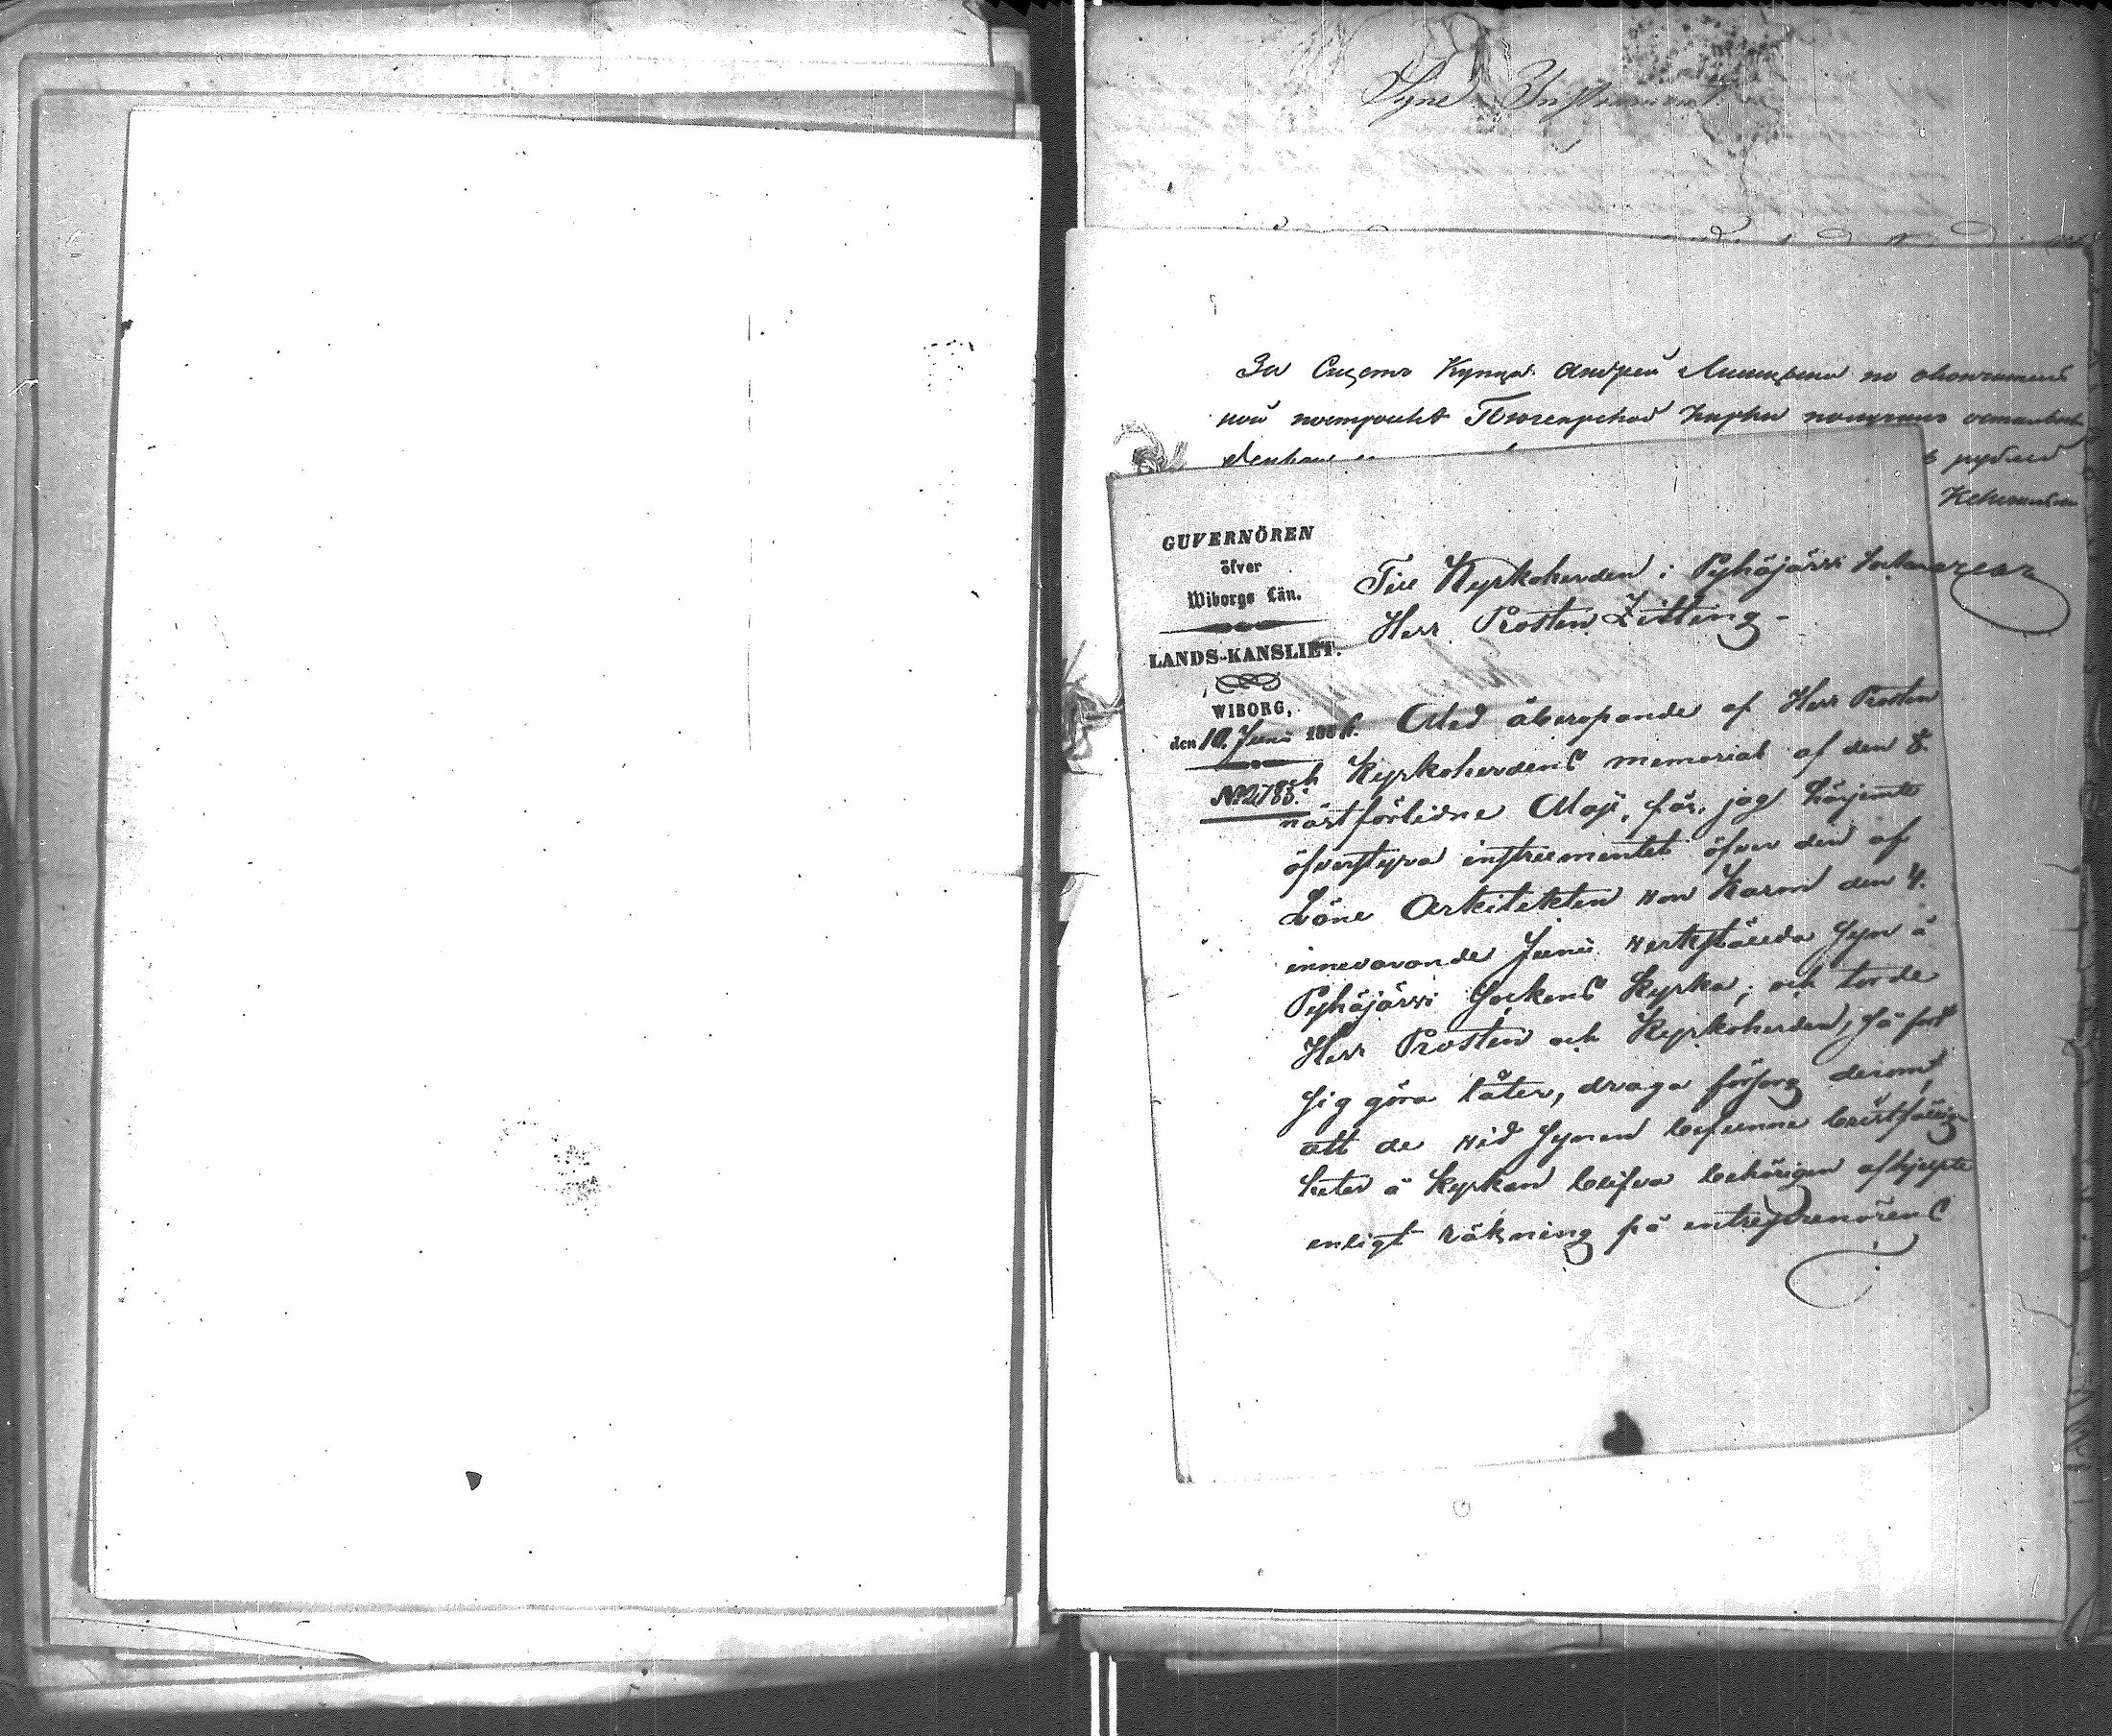 Syne Instrument
За Счетъ Купца Андрея
ной постройкѣ Кирки
рублей
GUVERNÖREN
öfver
Wiborgs Län.
LANDS-KANSLIET.
WIBORG,
den 10 Juni 186
No 2783.
Till Kyrkoherden i Pyhäjärvi Socken
Herr Prosten Zitting.
Med åberopande af Herr Prosten
och Kyrkoherdens memorial af den 8.
nästförlidne Maji, får jag härjemte
öfverstyra instrumentet öfver den af
Läne Arkitekten von Karm den 4.
innevarande Junii verkstälda Syn å
Pyhäjärvi Sockens Kyrka; och torde
Herr Prosten och Kyrkoherden, så fort
sig göra låter, draga försorg derom,
att de vid Synen befunne bristfällig-
heter å Kyrkan blifva behörigen afhjelpte
enligt räkning på entreprenörens